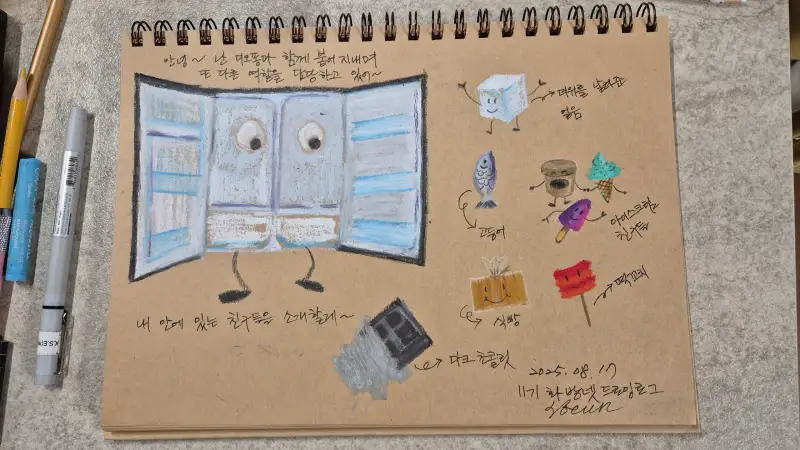 안녕~ 난 디오통과 함께 붙어 지내며
또 다른 역할을 담당하고 있어~
더위를 날려줄
얼음
고등어
아이스크림
친구들
식빵
떡꼬치
내 안에 있는 친구들을 소개할게~
다크 초콜릿
2025. 08. 17
11기 화방넷 드로잉로그
K.S.E